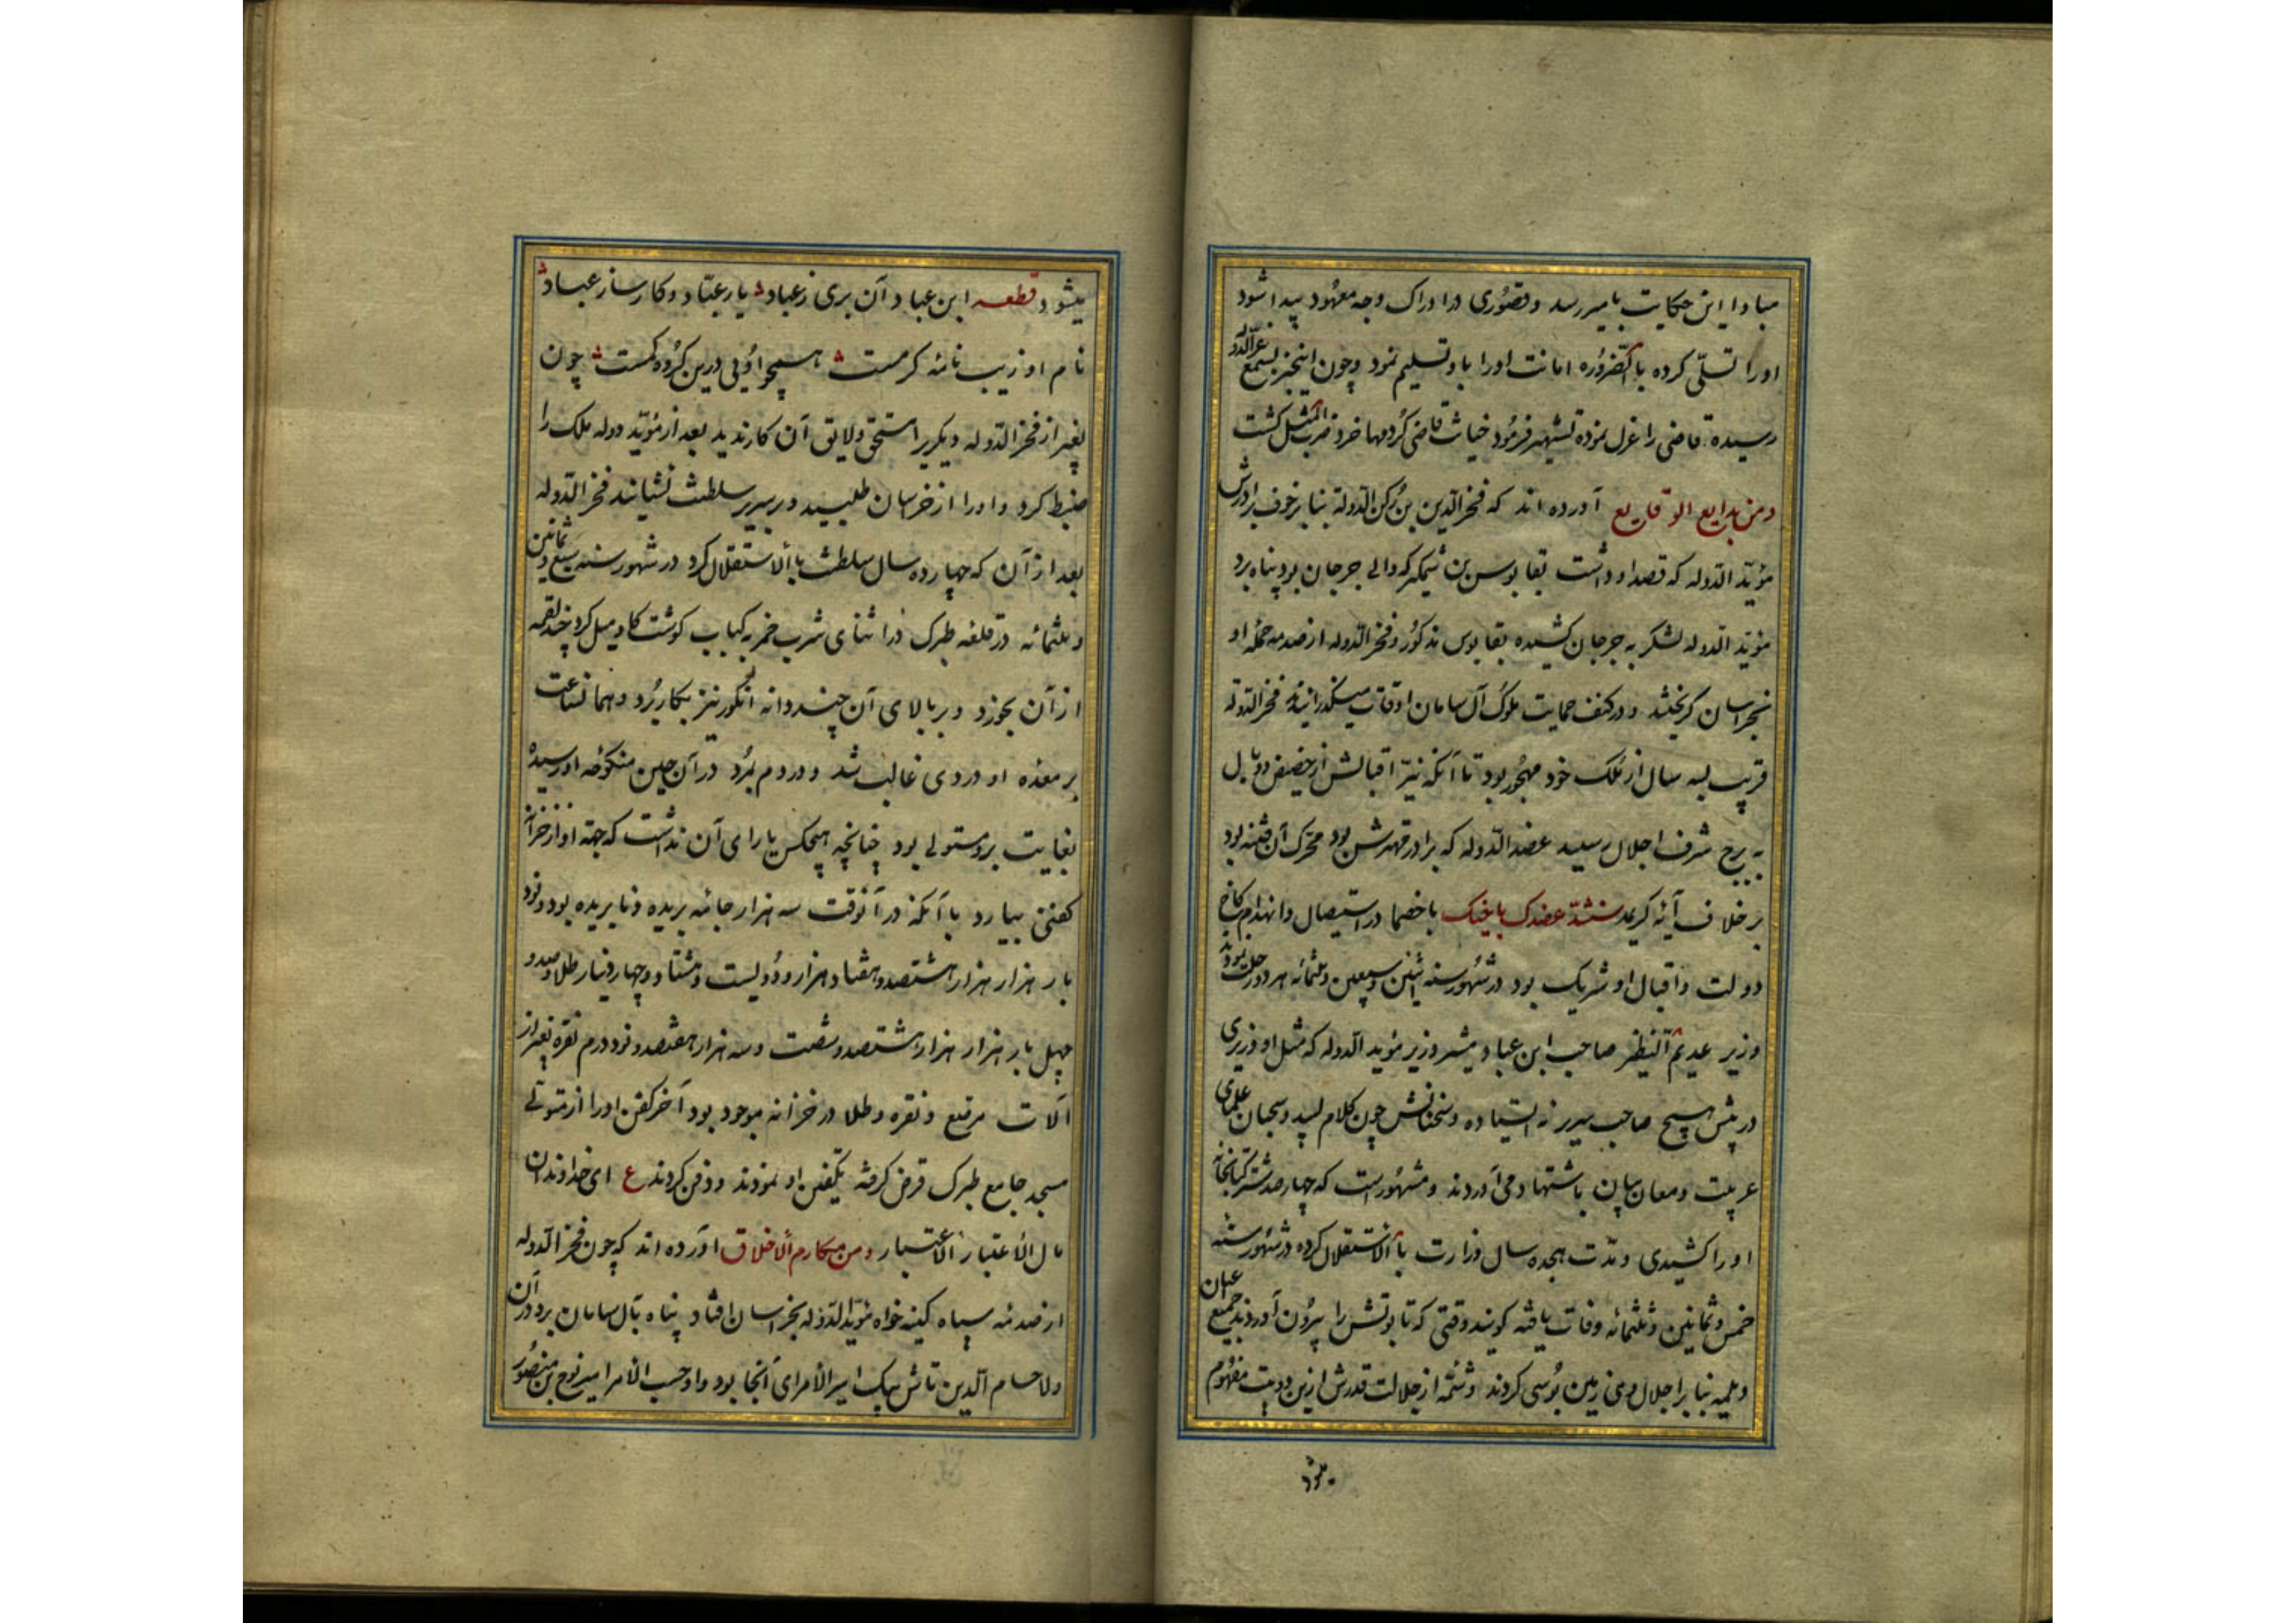 مبادا این حکایت بامیر رسد و قصوری در ادراک وجه معهود پیدا شود
اورا تسلّی کرده بالضّروره امانت اورا باو تسلیم نمود و چون اینخبر بسمع عزّالدّوله
رسیده قاضی را عزل نموده تشهیر فرمود خیانت قاضی کردمها خرد ضرب المثل کشت
ومن بدایع الوقایع آورده اند که فخرالدّین بن رکن الدّوله بنابر خوف برادرش
مؤیّد الدّوله که قصد او داشت بقابوس بن شمکیر که والی جرجان بود پناه برد
مؤیّد الدّوله لشکر به جرجان کشیده بقابوس مذکور و فخرالدّوله از صدمه حمله او
بخراسان کریختند و در کنف حمایت ملوک آل سامان اوقات میکذرانیدند فخرالدّوله
قریب بسه سال از ملک خود مهجور بود تا آنکه نیّر اقبالش از حضیض وبال
به برج شرف اجلال رسید عضدالدّوله که برادر مهترش بود محرّک آن فتنه بود
بر خلاف آیه کریمه سنشدّ عضدک باخیک باخصما در استیصال و انهدام کاخ
دولت و اقبال او شریک بود در شهور سنه اثنین و سبعین و ثلثمائه هر دو رحلت نمودند
وزیر عدیم النّظیر صاحب ابن عباد وزیر مؤید الدّوله که مثل او وزیری
در پیش هیچ صاحب سریر نه ایستاده و سخنانش چون کلام لبید و سحبان علمای
عربیت و معان بیان باستشهاد می آوردند و مشهور است که چهارصد شتر کتابخانه
اورا کشیدی و مدّت هجده سال وزارت بالاستقلال کرده در شهور سنه
خمس و ثمانین و ثلثمائه وفات یافته کویند وقتی که تابوتش را بیرون آوردند جمیع اعیان
دیلمیه بنابر اجلال وی زمین بوسی کردند و شمّه از جلالت قدرش ازین دو بیت مفهوم
میشود
میشود قطعه ابن عباد آن بری ز عباد یار عبّاد و کارساز عباد
نام او زیب نامه کرمست همچو اوئی درین کروه کمست چون
بغیر از فخرالدّوله دیکریرا مستحق و لایق آن کار ندید بعد از مؤیّد دوله ملک را
ضبط کرد و اورا از خراسان طلبید و بر سریر سلطنت نشانید فخرالدّوله
بعد از آن که چهارده سال سلطنت بالاستقلال کرد در شهور سنه سبع و ثمانین
و ثلثمائه در قلعه طبرک در اثنای شرب خمر به کباب کوشت کاو میل کرد چند لقمه
از آن بخورد و بر بالای آن چند دانه انکور نیز بکار برد و همانساعت
بر معده او دردی غالب شد و در دم بمرد در آن حین منکوحه او سیده
بغایت برو مستولی بود چنانچه هیچکس یارای آن نداشت که جهة او از خزانه
کفنی بیارد با آنکه در آنوقت سه هزار جامه بریده و نابریده بود و نود
بار هزار هزار هشتصد و هفتاد هزار و دویست و هشتاد و چهار دینار طلا و صد و
چهل بار هزار هزار هشتصد و شصت و سه هزار هفتصد و نود درم نقره بغیر از
آلات مرصّع و نقره و طلا در خزانه موجود بود آخر کفن اورا از متولّی
مسجد جامع طبرک قرض کرفته تکفین او نمودند و دفن کردند ع ای خداوندان
مال الاعتبار الاعتبار ومن مکارم الاخلاق آورده اند که چون فخرالدّوله
از صدمه سپاه کینه خواه مؤیدالدّوله بخراسان افتاد پناه بآل سامان برد در آن
ولا حسام الدّین تاش بیک امیرالامرای آنجا بود و او حسب الامر امیر نوح بن منصور